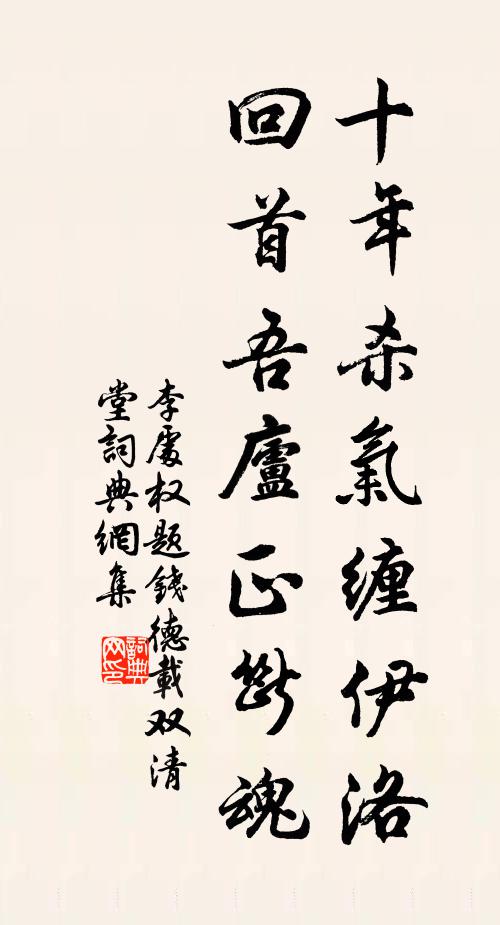 十年杀氣缠伊洛
回首吾廬正断魂
李處权题錢德載双清
堂詞典網集
詞典网印